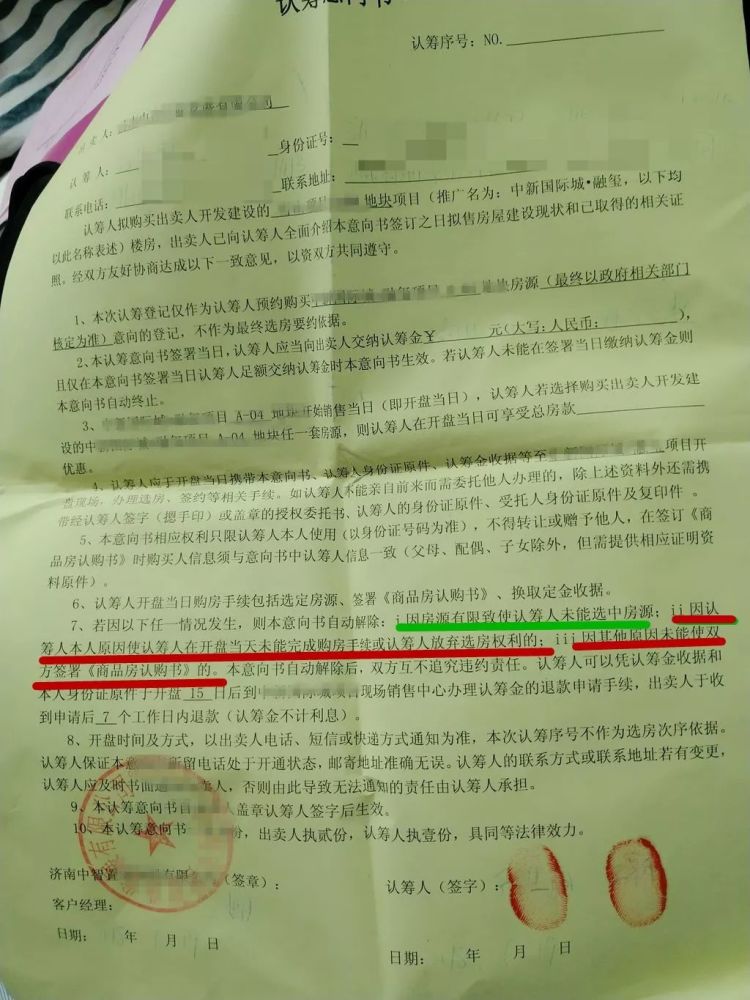 认筹意向书
认筹序号：NO.
出卖人：
认筹人：
身份证号：
联系电话：
联系地址：
认筹人拟购买出卖人开发建设的 地块项目（推广名为：中新国际城•融玺，以下均
以此名称表述）楼房，出卖人已向认筹人全面介绍本意向书签订之日拟售房屋建设现状和已取得的相关证
照。经双方友好协商达成以下一致意见，以资双方共同遵守。
1、本次认筹登记仅作为认筹人预约购买 地块房源（最终以政府相关部门
核定为准）意向的登记，不作为最终选房要约依据。
2、本认筹意向书签署当日，认筹人应当向出卖人交纳认筹金￥ 元（大写：人民币： ），
且仅在本意向书签署当日认筹人足额交纳认筹金时本意向书生效。若认筹人未能在签署当日缴纳认筹金则
本意向书自动终止。
3、 项目 A-04 地块开始销售当日（即开盘当日），认筹人若选择购买出卖人开发建
设的中 项目 A-04 地块任一套房源，则认筹人在开盘当日可享受总房款
优惠。
4、认筹人应于开盘当日携带本意向书、认筹人身份证原件、认筹金收据等至 项目开
盘现场，办理选房、签约等相关手续。如认筹人不能亲自前来而需委托他人办理的，除上述资料外还需携
带经认筹人签字（摁手印）或盖章的授权委托书、认筹人的身份证原件、受托人身份证原件及复印件。
5、本意向书相应权利只限认筹人本人使用（以身份证号码为准），不得转让或赠予他人，在签订《商
品房认购书》时购买人信息须与意向书中认筹人信息一致（父母、配偶、子女除外，但需提供相应证明资
料原件）。
6、认筹人开盘当日购房手续包括选定房源、签署《商品房认购书》、换取定金收据。
7、若因以下任一情况发生，则本意向书自动解除：i因房源有限致使认筹人未能选中房源；ii因认
筹人本人原因使认筹人在开盘当天未能完成购房手续或认筹人放弃选房权利的；iii因其他原因未能使双
方签署《商品房认购书》的。本意向书自动解除后，双方互不追究违约责任。认筹人可以凭认筹金收据和
本人身份证原件于开盘 15 日后到中 项目现场销售中心办理认筹金的退款申请手续，出卖人于收
到申请后 7 个工作日内退款（认筹金不计利息）。
8、开盘时间及方式，以出卖人电话、短信或快递方式通知为准，本次认筹序号不作为选房次序依据。
认筹人保证本意 所留电话处于开通状态，邮寄地址准确无误。认筹人的联系方式或联系地址若有变更，
认筹人应及时书面通 卖人，否则由此导致无法通知的责任由认筹人承担。
9、本认筹意向书自 人盖章认筹人签字后生效。
10、本认筹意向书 份，出卖人执贰份，认筹人执壹份，具同等法律效力。
济南中智置 有限 （签章）：
认筹人（签字）：
客户经理：
日期： 年 月 日
日期： 年 月 日